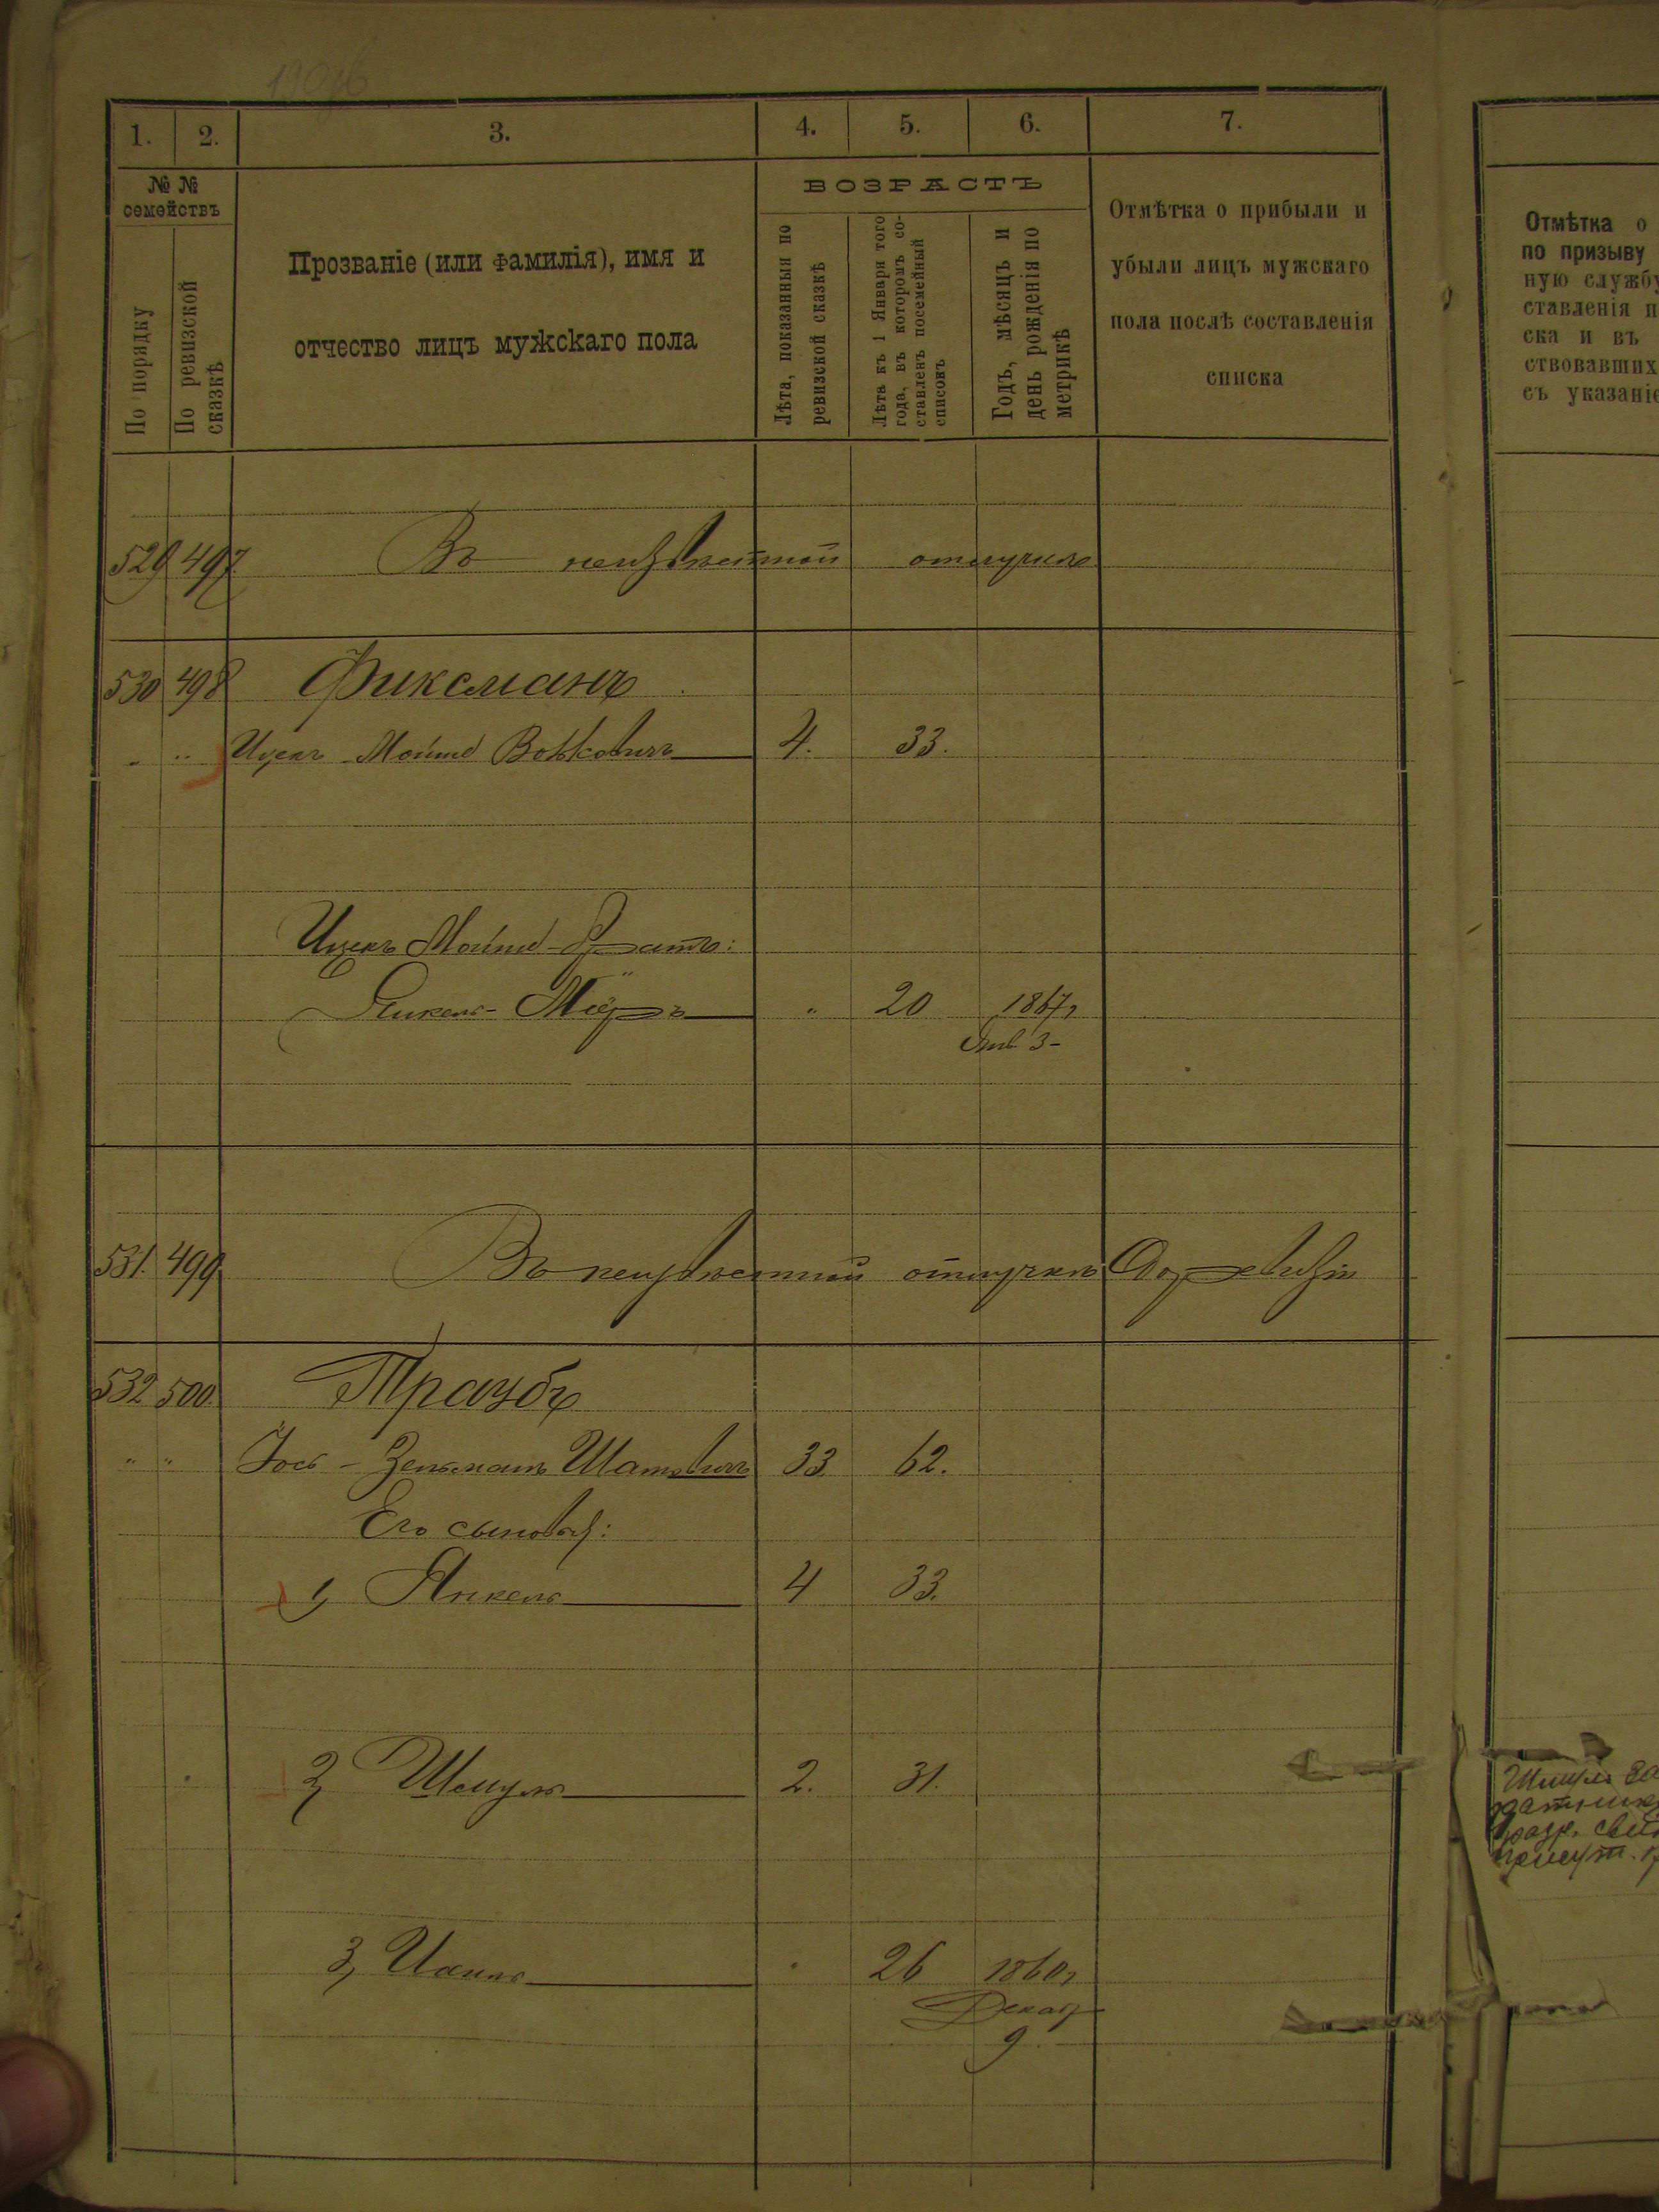 1. 2. 3. 4. 5. 6. 7.
№ №
семействъ
По порядку
По ревизской
сказкѣ
Прозваніе (или фамилія), имя и
отчество лицъ мужскаго пола
ВОЗРАСТЪ
Лѣта, показанныя по
ревизской сказкѣ
Лѣта къ 1 Января того
года, въ которомъ со-
ставленъ посемейный
списокъ
Годъ, мѣсяцъ и
день рожденія по
метрикѣ
Отмѣтка о прибыли и
убыли лицъ мужскаго
пола послѣ составленія
списка
Отмѣтка о
по призыву
ную службу
ставленія п
ска и въ
ствовавших
съ указаніе
529 497 Въ неизвѣстной отлучкѣ
530 498 Фиксманъ
" " Ицекъ Мойше Вольковичъ 4. 33.
Ицекъ Мойше братъ:
Янкель- Меиръ " 20 1867г
Янв. 3-
531. 499 Въ неизвѣстной отлучкѣ до ревизіи
532 500. Траубъ
" " Іось - Зельманъ 33 62.
Его сыновья:
1, Янкель 4 33.
2, Шмуль 2. 31.
3, 26 1860г
Декаб
9.
Шмуль